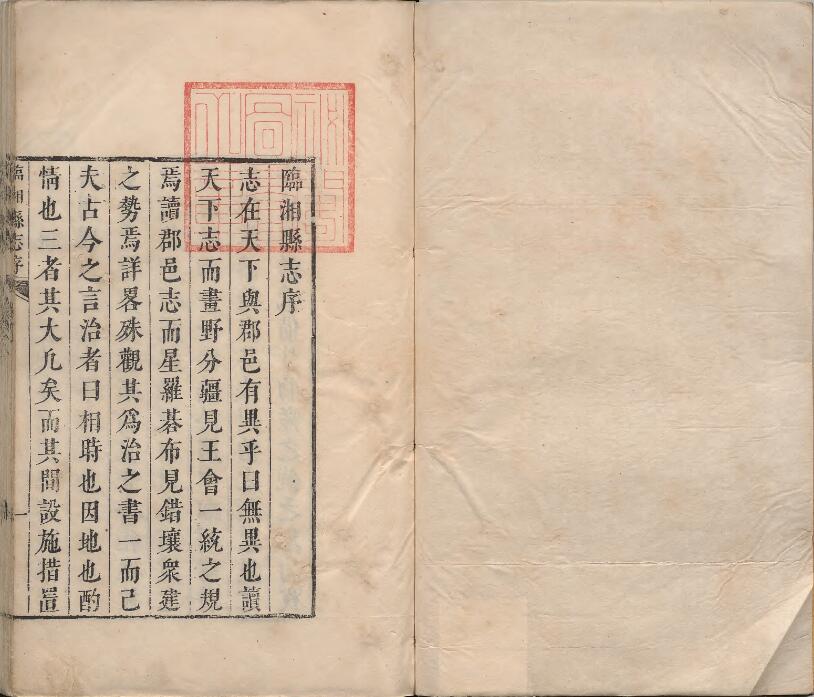 臨湘縣志序
志在天下與郡邑有異乎曰無異也讀
天下志而畫野分疆見王會一統之規
焉讀郡邑志而星羅碁布見錯壤衆建
之勢焉詳畧殊觀其爲治之書一而已
夫古今之言治者曰相時也因地也酌
情也三者其大凡矣而其間設施措置
臨湘縣志序
一